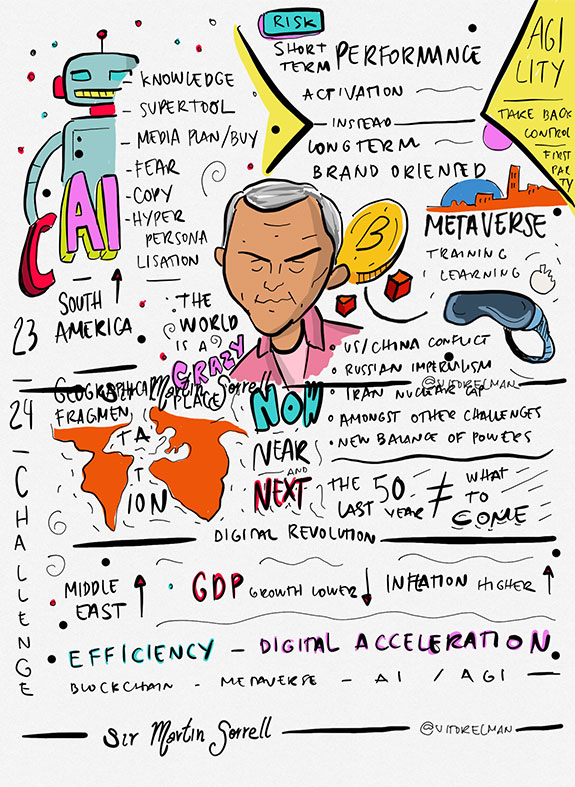 RISK
SHORT TERM PERFORMANCE
ACTIVATION
INSTEAD
LONG TERM
BRAND ORIENTED
AGI
LITY
TAKE BACK
CONTROL
FIRST
PAR
TY
- KNOWLEDGE
- SUPERTOOL
- MEDIA PLAN/BUY
- FEAR
- COPY
- HYPER
PERSONA
LISATION
C
AI
B
METAVERSE
TRAINING
LEARNING
SOUTH
AMERICA
THE
WORLD
IS A
CRAZY
PLACE
23
24
CHALLENGE
Sir Martin Sorrell
@VITORELMAN
GEOGRAPHICAL
FRAGMEN
TA
T
ION
• US/CHINA CONFLICT
• RUSSIAN IMPERIALISM
• IRAN NUCLEAR CAP
• AMONGST OTHER CHALLENGES
• NEW BALANCE OF POWERS
NOW
NEAR
AND
NEXT
THE LAST 50 YEAR ≠ WHAT TO COME
DIGITAL REVOLUTION
MIDDLE
EAST
GDP GROWTH LOWER
INFLATION HIGHER
EFFICIENCY - DIGITAL ACCELERATION
BLOCKCHAIN - METAVERSE - AI / AGI -
Sir Martin Sorrell
@VITORELMAN